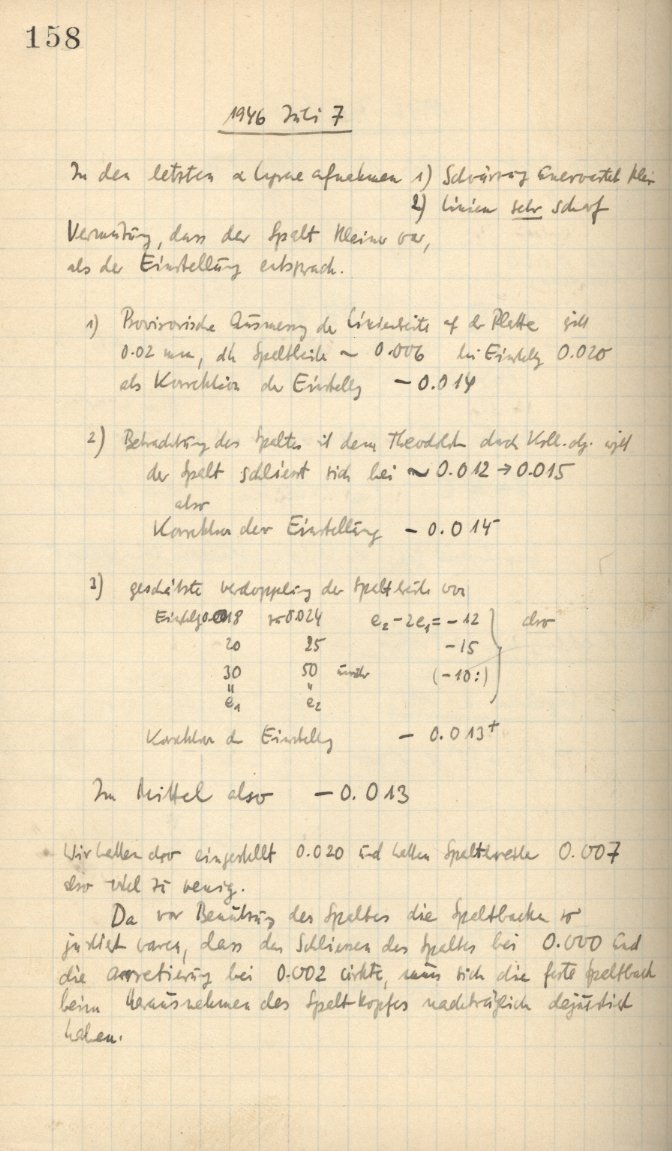 158
1946 Juli 7
In den letzten α Lyrae Aufnahmen 1) Schwärzung unerwartet klein
2) Linien sehr scharf
Vermutung, dass der Spalt kleiner war,
als der Einstellung entsprach.
1) Provisorische Ausmessung der Linienbreite auf der Platte gibt
0.02 mm, dh Spaltbreite ~ 0.006 bei Einstellg 0.020
als Korrektion der Einstellg - 0.014
2) Betrachtung des Spaltes mit dem Theodolit durch Koll. obj. gibt
der Spalt schliesst sich bei ~ 0.012 → 0.015
also
Korrektion der Einstellung - 0.014
3) geschätzte Verdopplung der Spaltbreite von
Einstellg 0.018 → 0.024 e₂-2e₁ = -12 also
20 25 -15
30 50 (-10:)
" "
e₁ e₂
Korrektion der Einstellg - 0.013+
Im Mittel also - 0.013
Wir hatten also eingestellt 0.020 und hatten Spaltbreite 0.007
also viel zu wenig.
Da vor Benützung des Spaltes die Spaltbacken so
justiert waren, dass das Schliessen des Spaltes bei 0.000 und
die Arretierung bei 0.002 wirkte, muss sich die feste Spaltback
beim Herausnehmen des Spaltkopfes nachträglich dejustiert
haben.